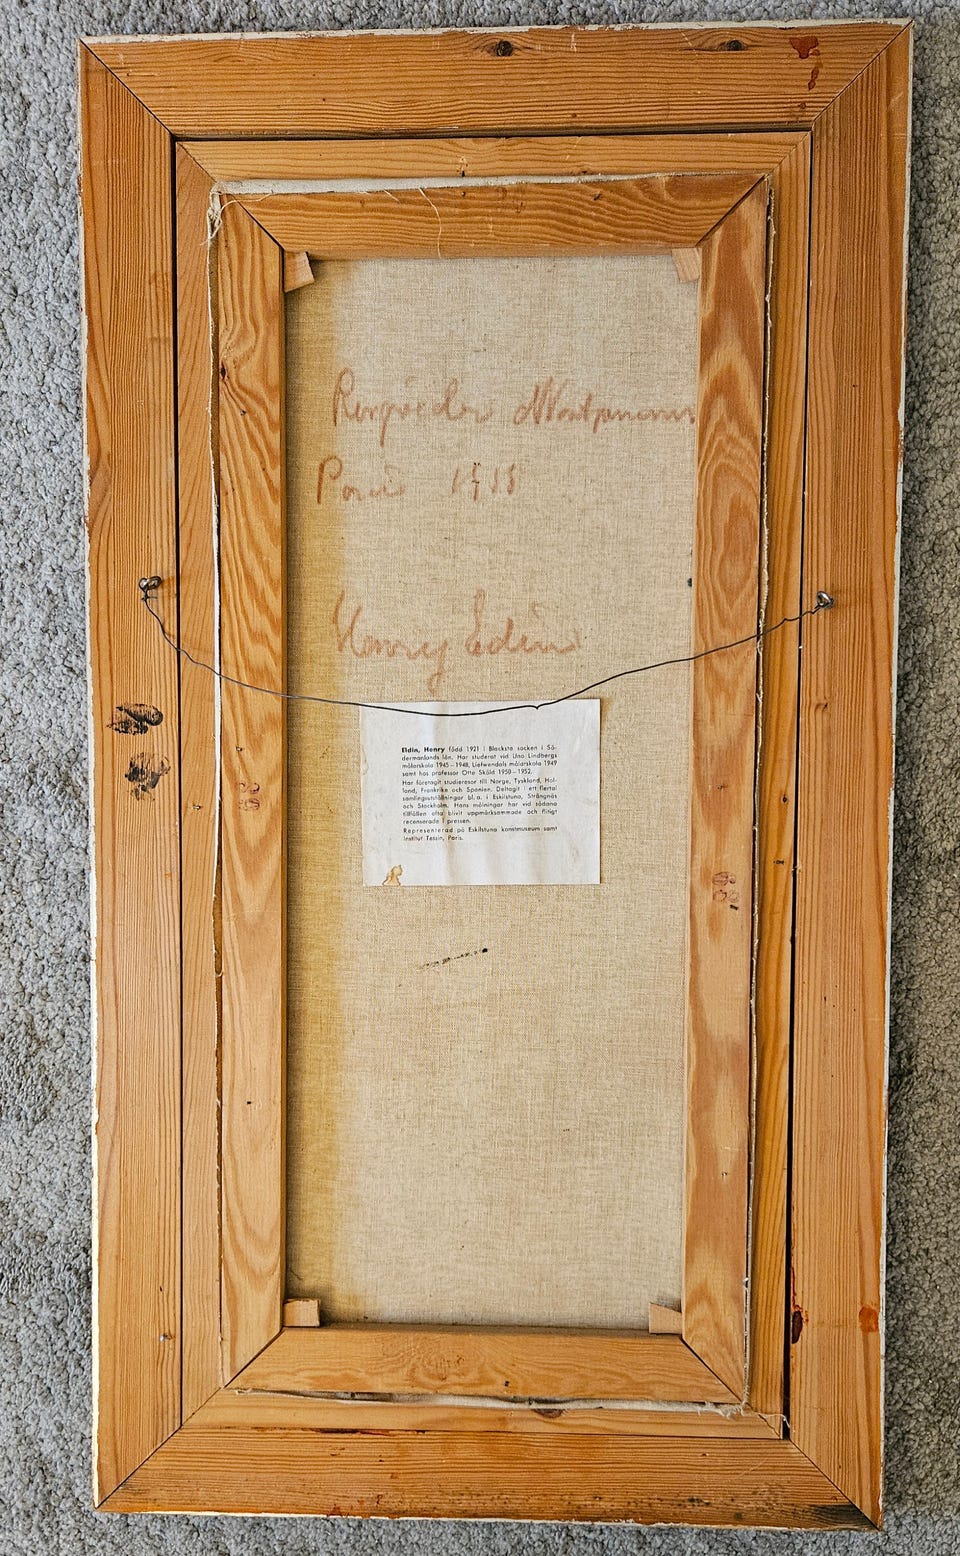 Paris 1955
Henry Eldin
Eldin, Henry född 1921 i Blacksta socken i Sö-
dermanlands län. Har studerat vid Uno Lindbergs
målarskola 1945–1948, Liefwendals målarskola 1949
samt hos professor Otte Sköld 1950–1952.
Har företagit studieresor till Norge, Tyskland, Hol-
land, Frankrike och Spanien. Deltagit i ett flertal
samlingsutställningar bl. a. i Eskilstuna, Strängnäs
och Stockholm. Hans målningar har vid sådana
tillfällen ofta blivit uppmärksammade och flitigt
recenserade i pressen.
Representerad på Eskilstuna konstmuseum samt
Institut Tessin, Paris.